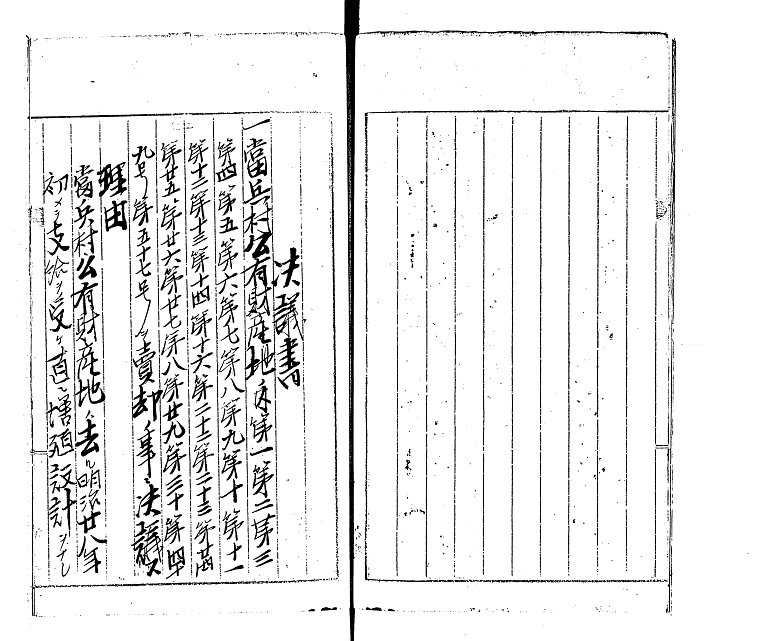 決議書
一當兵村公有財産地ノ内第一第二第三
第四第五第六第七第八第九第十第十一
第十二第十三第十四第十六第二十二第二十三第廿四
第廿五第廿六第廿七第廿八第廿九第三十第四十
九号第五十七号ノヲ賣却ノ事ニ決議ス
理由
當兵村公有財産地ハ去ル明治廿八年
初メテ支給ヲ受ケ直ニ増殖設計ヲナシ